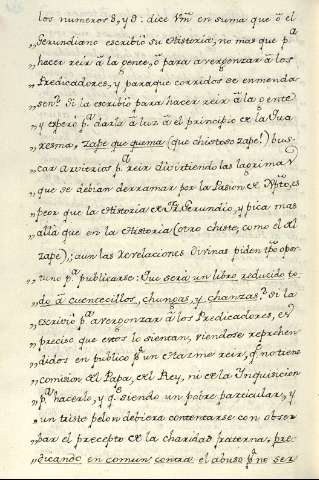 los numeros 8, y 9: dice Vm̃ en suma que ò el
„Gerundiano escribiò su Historia, no mas que pª
„hacer reir â la gente, ò para avergonzar â los
„Predicadores, y paraque corridos se enmenda
„sen? Si la escribiò para hacer reir â la gente
„y esperò pª darla â luz â el principio de la Qua
„resma, zape que quema (que chistoso zape!) bus
„car arvitrios pª reir divirtiendo las lagrimas
„que se debian derramar por la Pasion de Nr̃o, es
„peor que la Historia de Fr. Gerundio, y pica mas
„allâ que en la Historia (otro chiste, como el del
„zape); aun las Revelaciones Divinas piden tpõ opor
„tuno pª publicarse: Que serà un libro reducido to
„do â cuentecillos, chungas, y chanzas? Si la
„escriviò pª avergonzar â los Predicadores, es
„preciso que estos lo sientan, viendose reprehen
„didos en publico pr un Marzmo reir, qe no tiene
„comision del Papa, del Rey, ni de la Inquisicion
„pª hacerlo, y qe siendo un pobre particular, y
„un triste pelon debiera contentarse con obser
„bar el precepto de la charidad fraterna, pre
„dicando en comun contra el abuso pª no ser